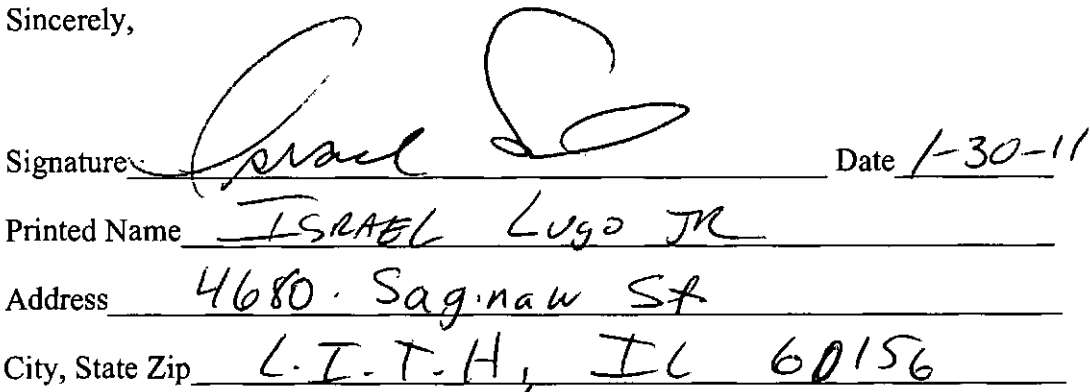 Sincerely,
Signature Israel Date 1-30-11
Printed Name ISRAEL Lugo JR
Address 4680. Saginaw St
City, State Zip L.I.T.H, IL 60156